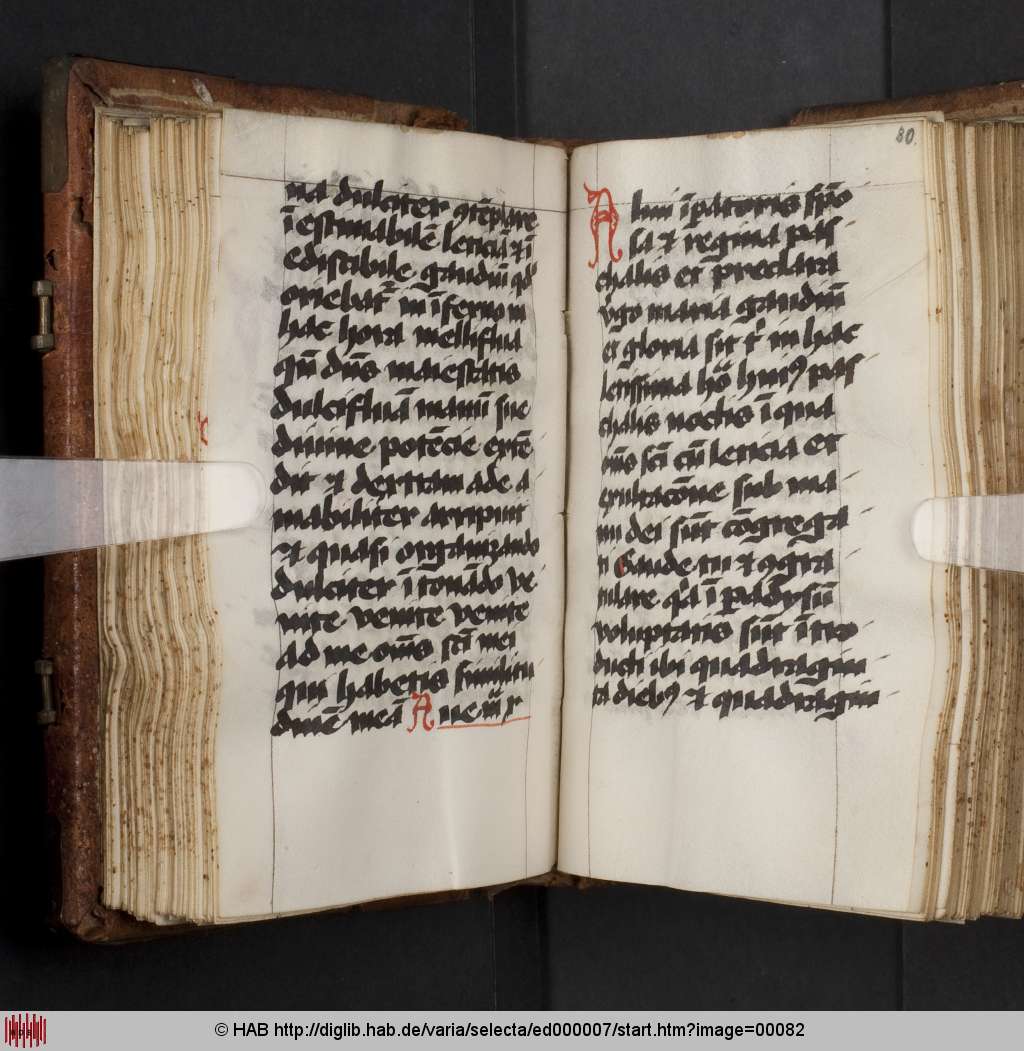 na dulciter 9te᷑plare
i᷑ estimabile᷑ leticia᷑ et i᷑
edicibile gaudiu᷑ qd
oriebat᷑ in i᷑ferno in
hac hora melliflua
qn᷑ dn᷑s maiestatis
dulciflua᷑ manu᷑ sue
diuine pote᷑cie exte᷑
dit et dextram ade a
mabiliter arripuit
et quasi organizando
dulciter i᷑tona᷑do ve
nite venite venite
ad me om᷑s sc᷑i mei
qui habetis similitu
dine᷑ mea᷑ Aue m᷑ r
80.
Alm i᷑patoris spo᷑
sa et regina pas
chalis et preclara
v᷑go maria gaudiu᷑
et gloria sit t᷑ in hac
leti᷑ssima ho᷑ hui9 pas
chalis noctis i᷑ qua
om᷑s sc᷑i cu᷑ leticia et
exultaco᷑ne sub ma
nu dei su᷑t co᷑grega
ti Gaude tu et 9gra
tulare q᷑a i᷑ padysu᷑
voluptatis su᷑t i᷑tro
ducti ibi quadragin
ta dieb9 et quadragin
© HAB http://diglib.hab.de/varia/selecta/ed000007/start.htm?image=00082